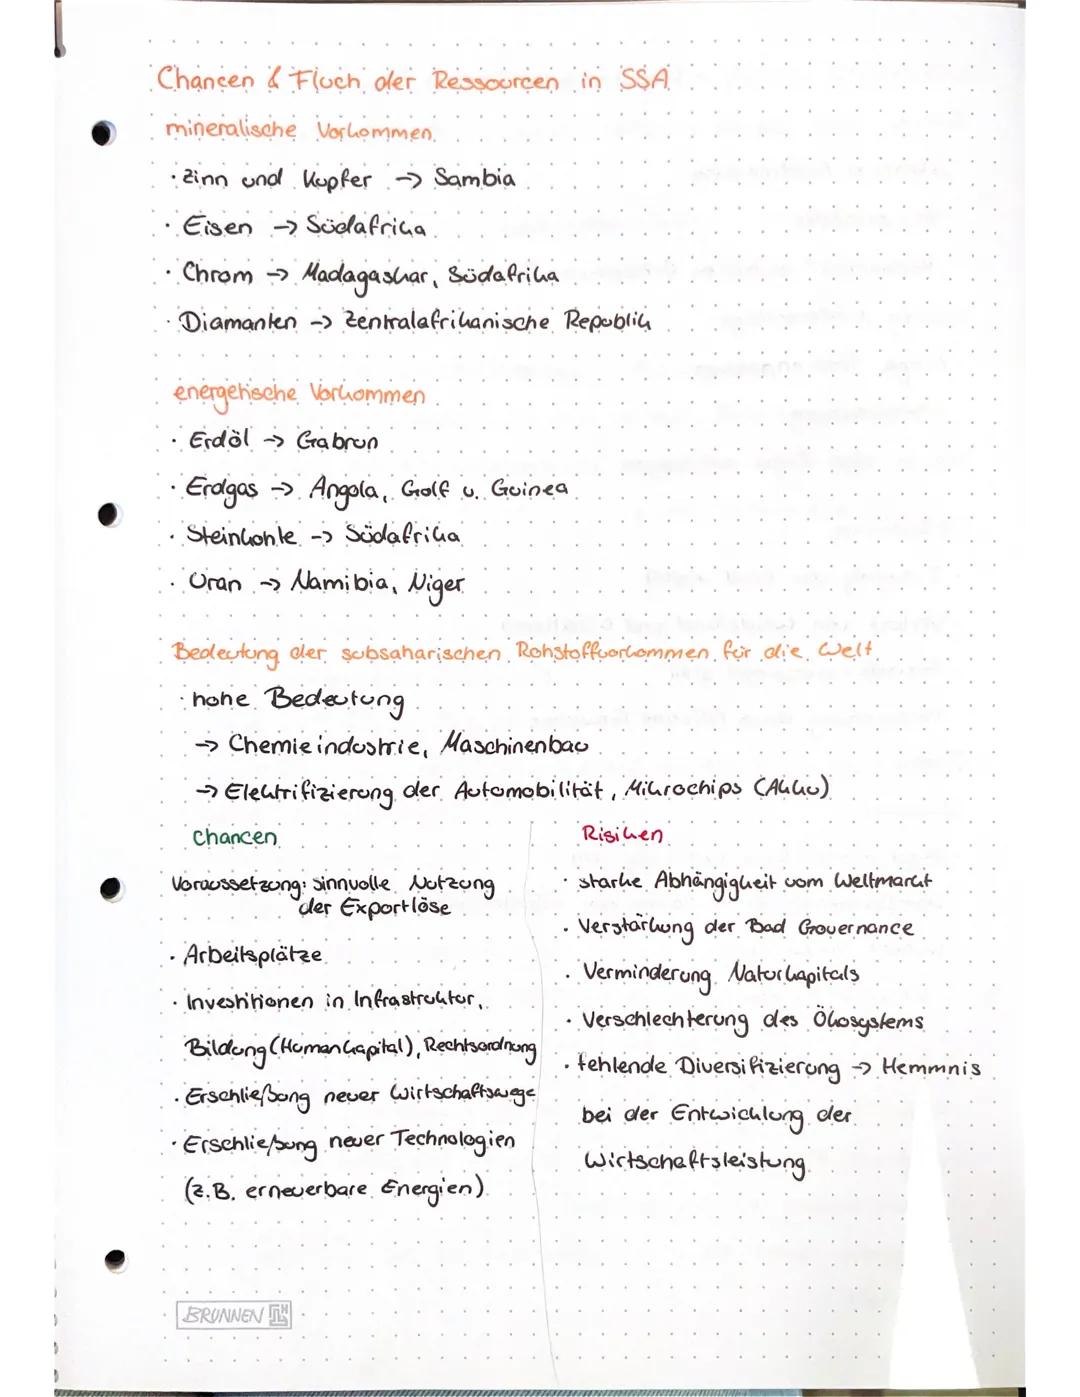 Chancen & Fluch der Ressourcen in SSA
mineralische Vorkommen
· Zinn und Kupfer → Sambia
· Eisen → Südafrika
· Chrom → Madagaskar, Südafrika
· Diamanten → Zentralafrikanische Republik
energetische Vorkommen
· Erdöl → Gabrun
· Erdgas → Angola, Golf v. Guinea
· Steinkohle → Südafrika
· Uran → Namibia, Niger
Bedeutung der subsaharischen Rohstoffvorkommen für die Welt
· hohe Bedeutung
→ Chemieindustrie, Maschinenbau
→ Elektrifizierung der Automobilität, Mikrochips (Akku)
Chancen
Voraussetzung: sinnvolle Nutzung
der Exportlöse
· Arbeitsplätze
· Investitionen in Infrastruktur,
Bildung (Humankapital), Rechtsordnung
· Erschließung neuer Wirtschaftswege
· Erschließung neuer Technologien
(z.B. erneuerbare Energien)
Risiken
· starke Abhängigkeit vom Weltmarkt
· Verstärkung der Bad Governance
· Verminderung Naturkapitals
· Verschlechterung des Ökosystems
· fehlende Diversifizierung → Hemmnis
bei der Entwicklung der
Wirtschaftsleistung
BRUNNEN